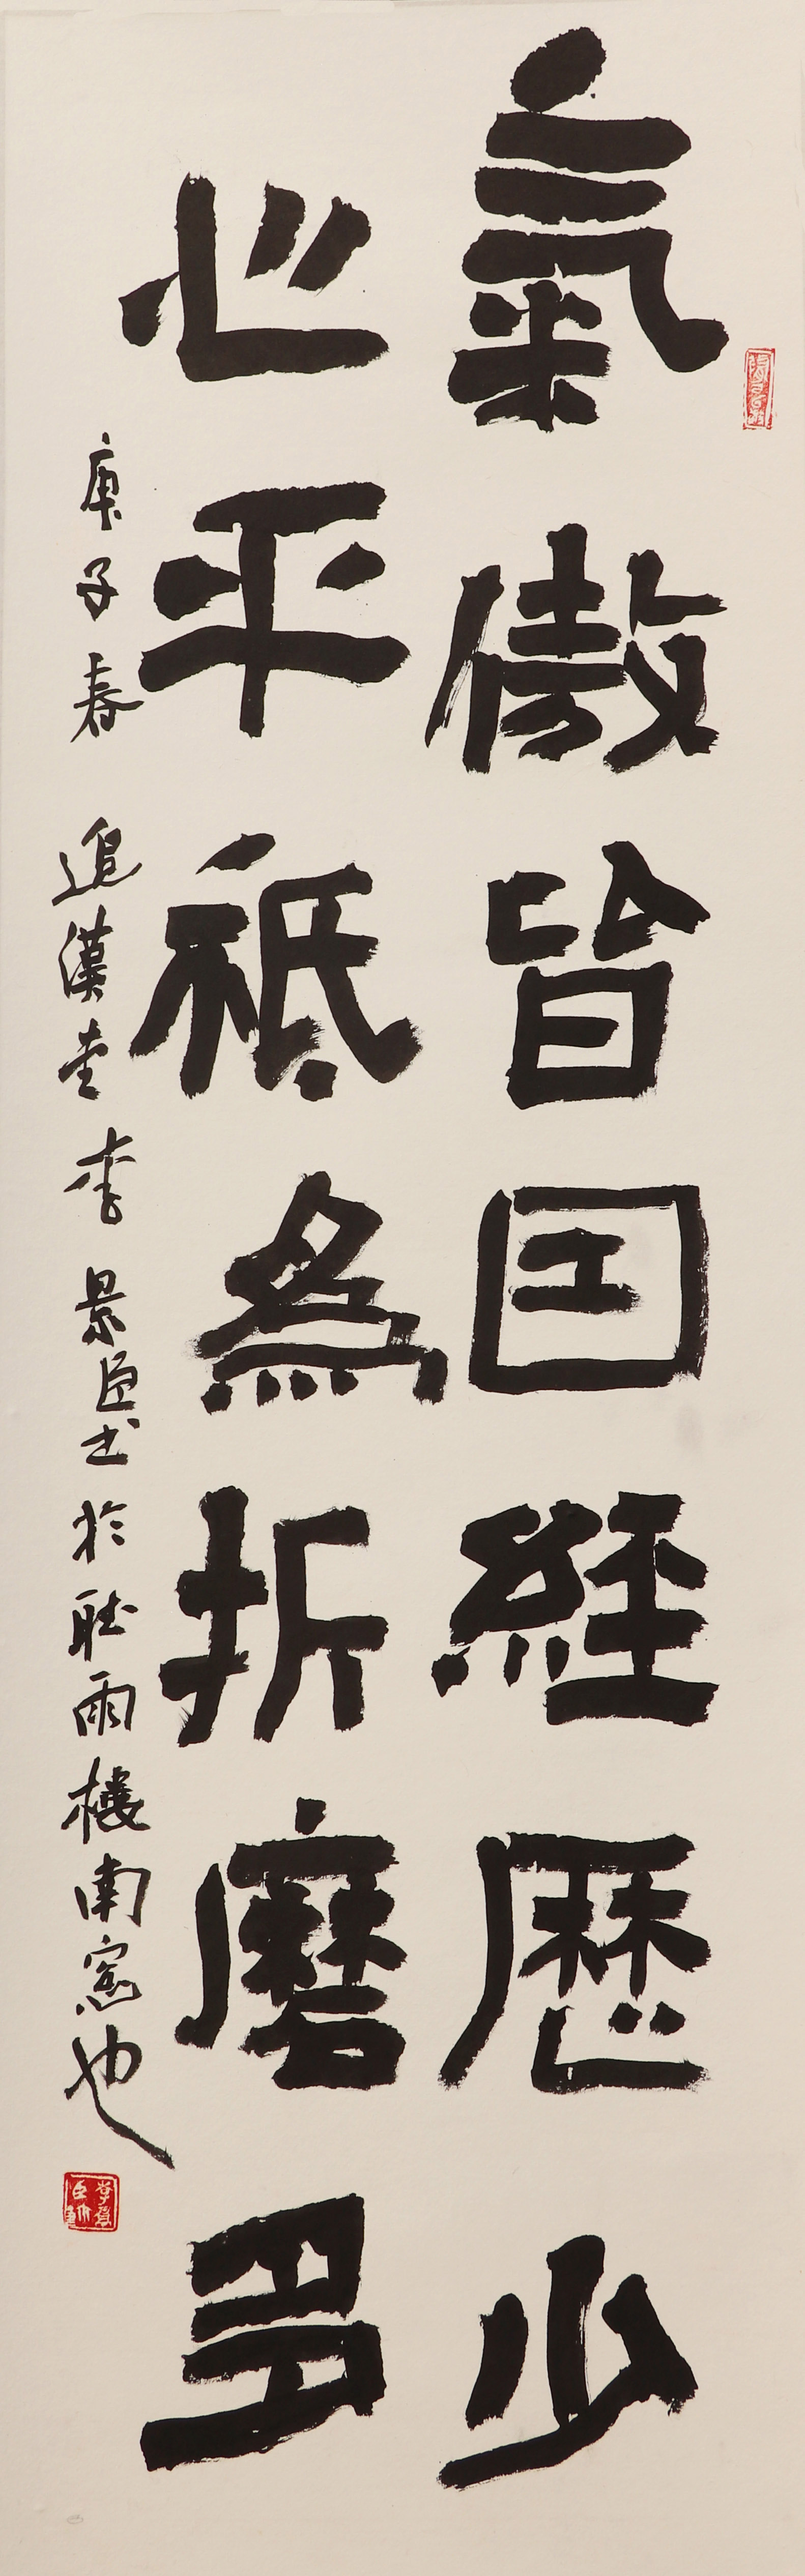 氣傲皆因經歷少
心平祗為折磨多
庚子春 追漢堂 李景臣書於聽雨樓南窗也